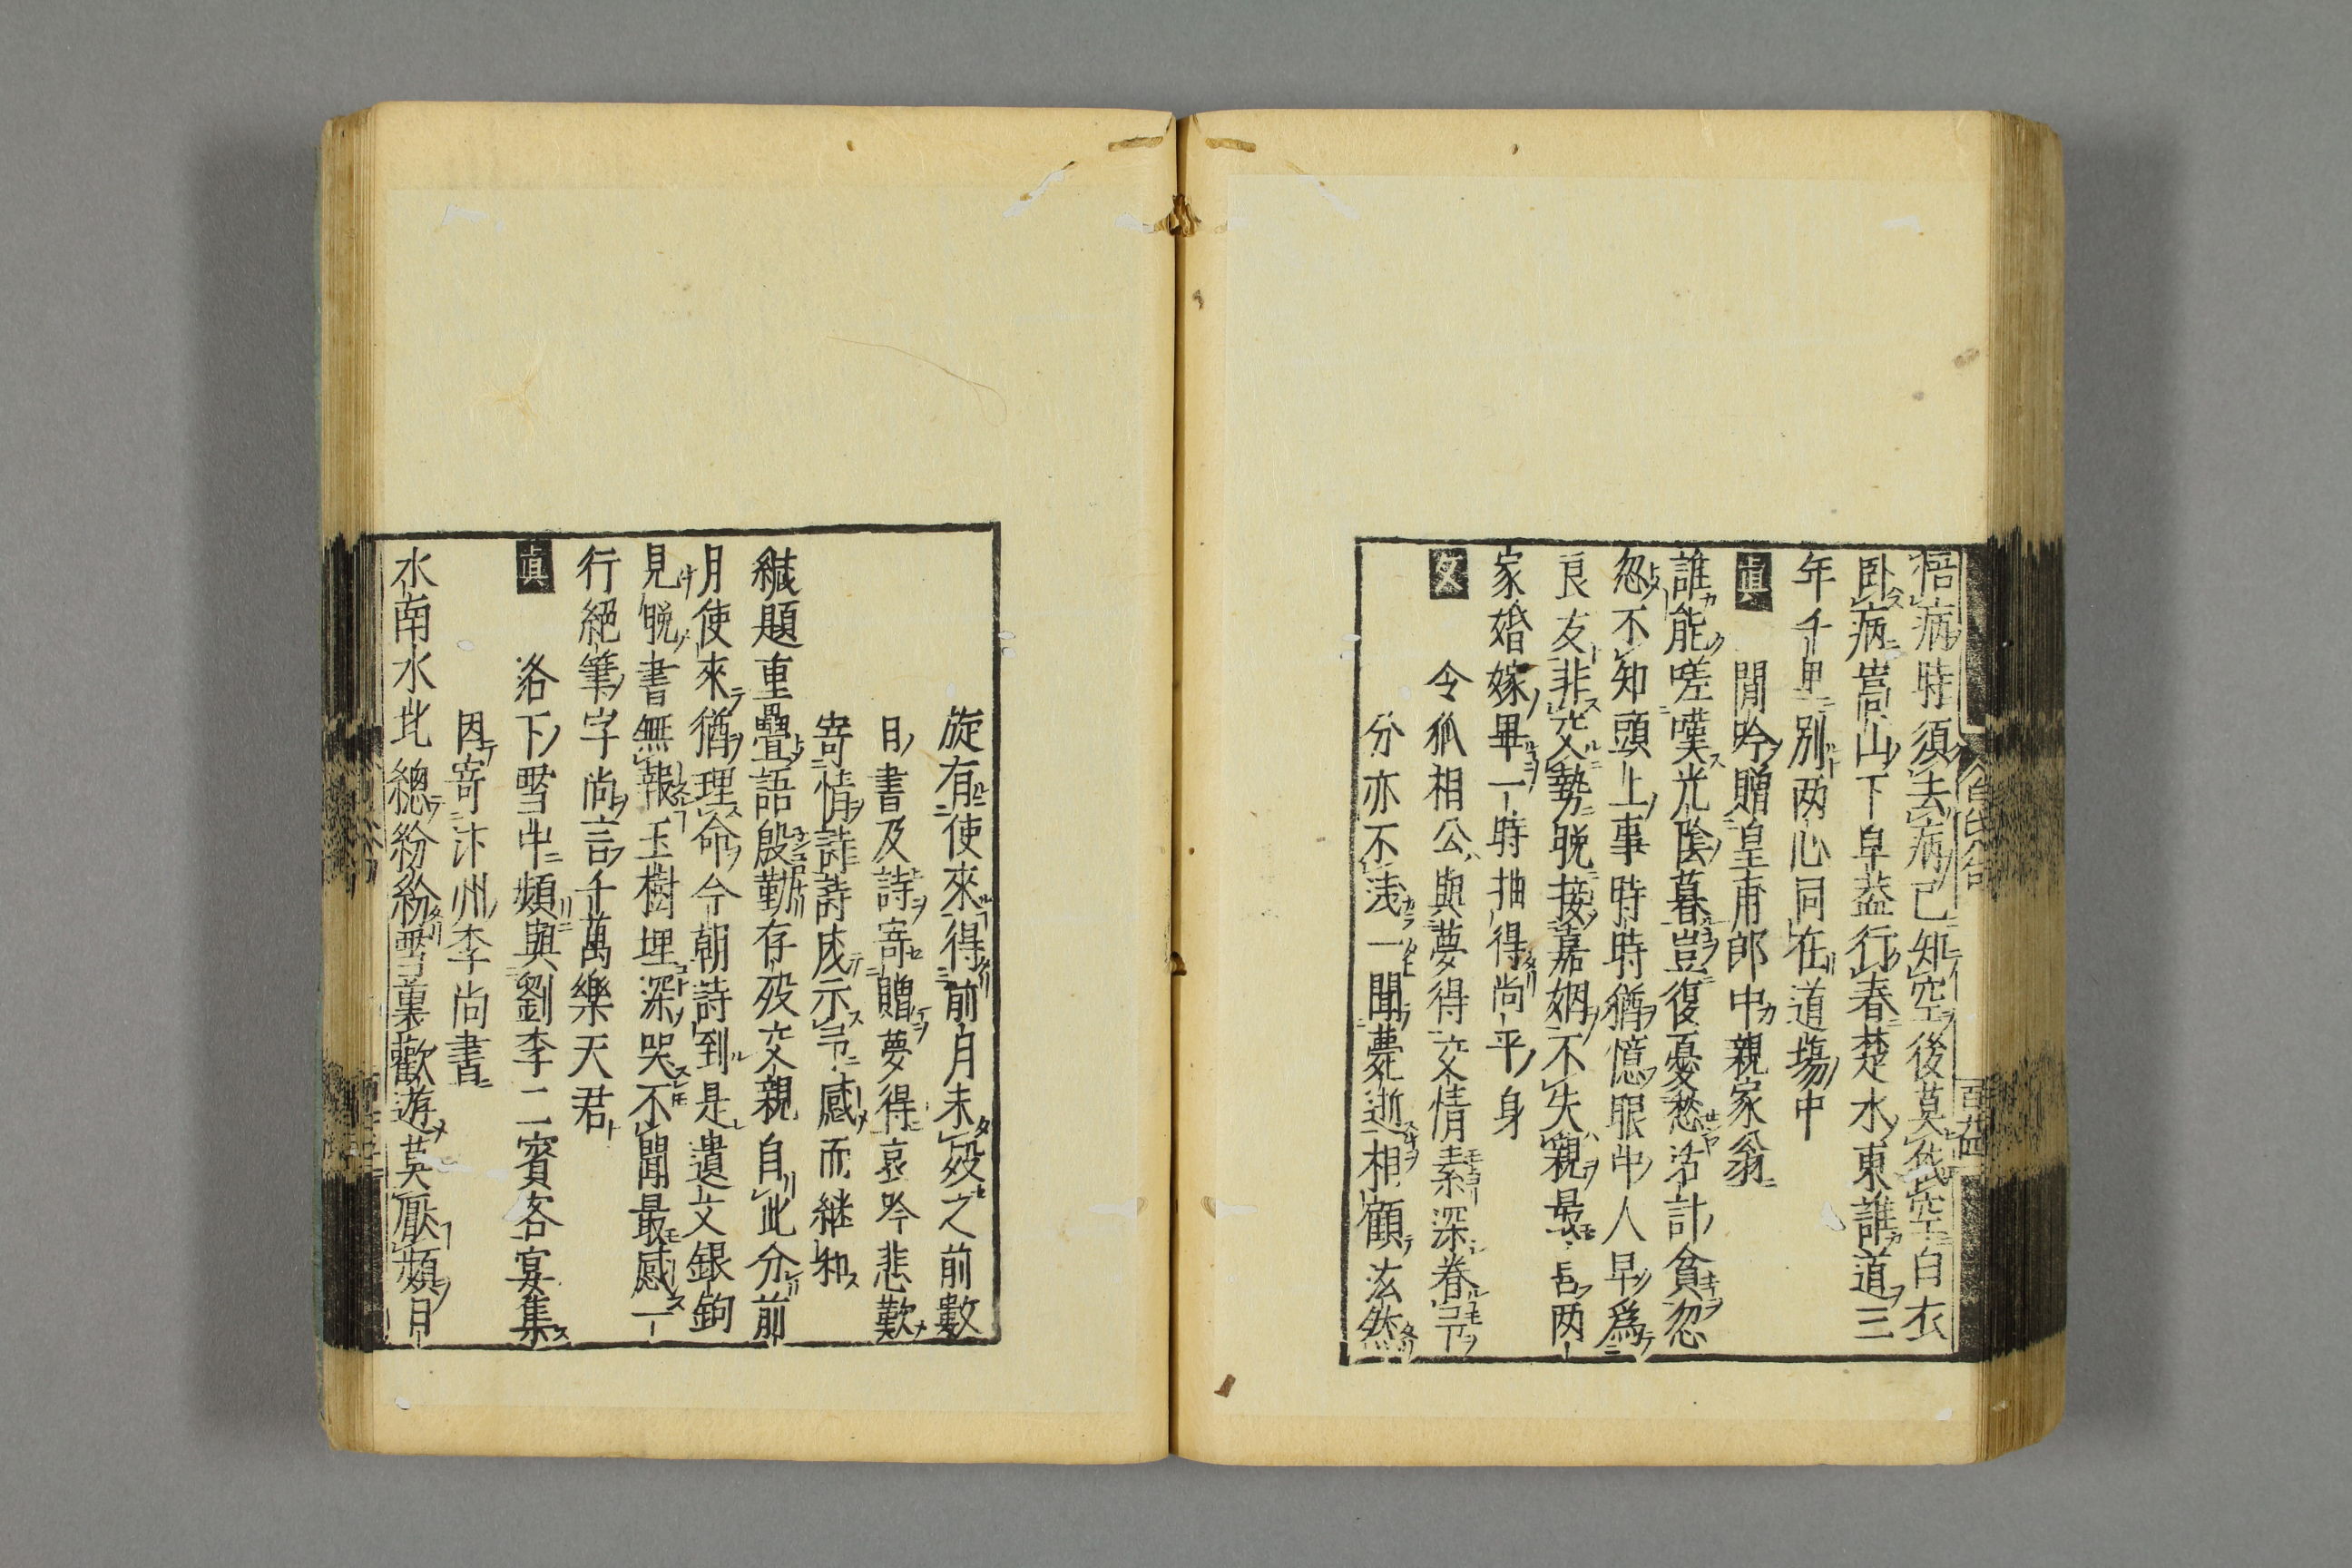 悟病時須去病已知空後莫依空白衣
卧病嵩山下皁葢行春楚水東誰道三
年千里別两心同在道塲中
眞 閒吟贈皇甫郎中親家翁
誰能嗟嘆光陰暮豈復憂愁活計貧忽
忽不知頭上事時時猶憶眼中人早為
良友非交勢晚接嘉姻不失親最喜两
家婚嫁畢一時抽得尚平身
文 令狐相公與夢得交情素深眷予
分亦不浅一聞薨逝相顧泫然
旋有使來得前月未歿之前數
日書及詩寄贈夢得哀吟悲歎
寄情詩詩成示予感而継和
緘題重疊語殷勤存歿交親自此分前
月使來猶理命今朝詩到是遺文銀鉤
見晩書無報玉樹埋深哭不聞最感一
行絕筆字尚言千萬樂天君
眞 洛下雪中頻與劉李二賓客宴集
因寄汴州李尚書
水南水北總紛紛雪裏歡遊莫厭頻日